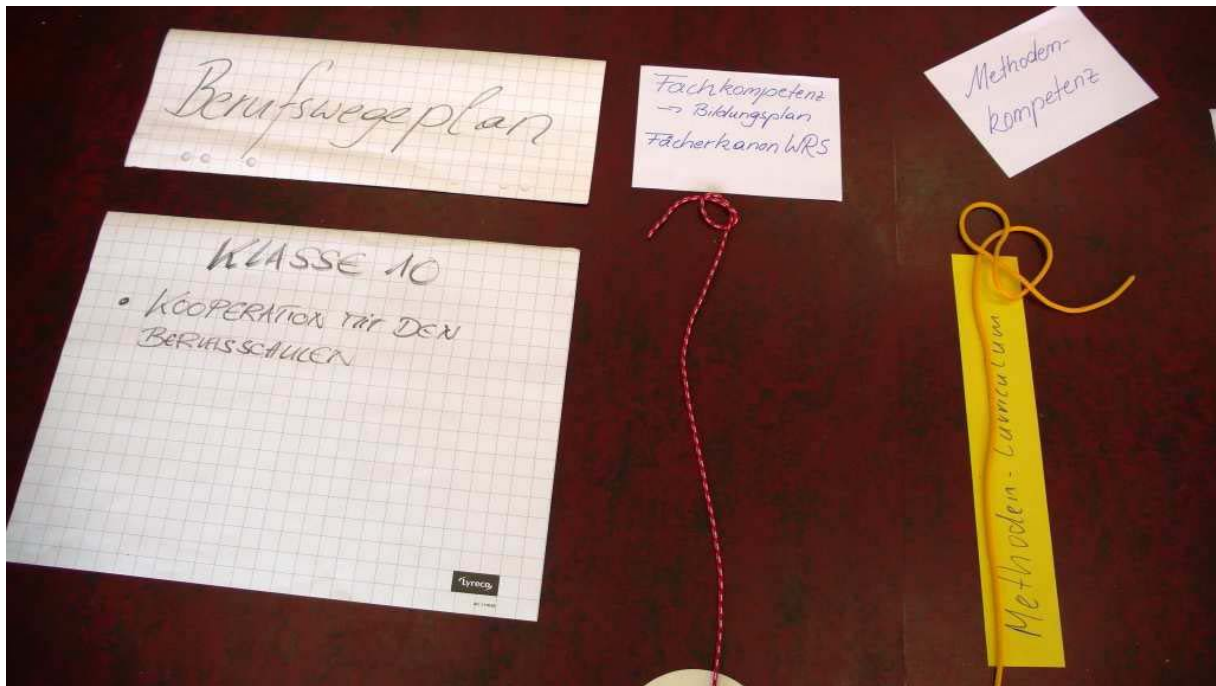 Berufswegeplan
KLASSE 10
• KOOPERATION mit DEN
BERUFSSCHULEN
lyreco
Fachkompetenz
→ Bildungsplan
Fächerkanon WRS
Methoden-
kompetenz
Methoden-Curriculum